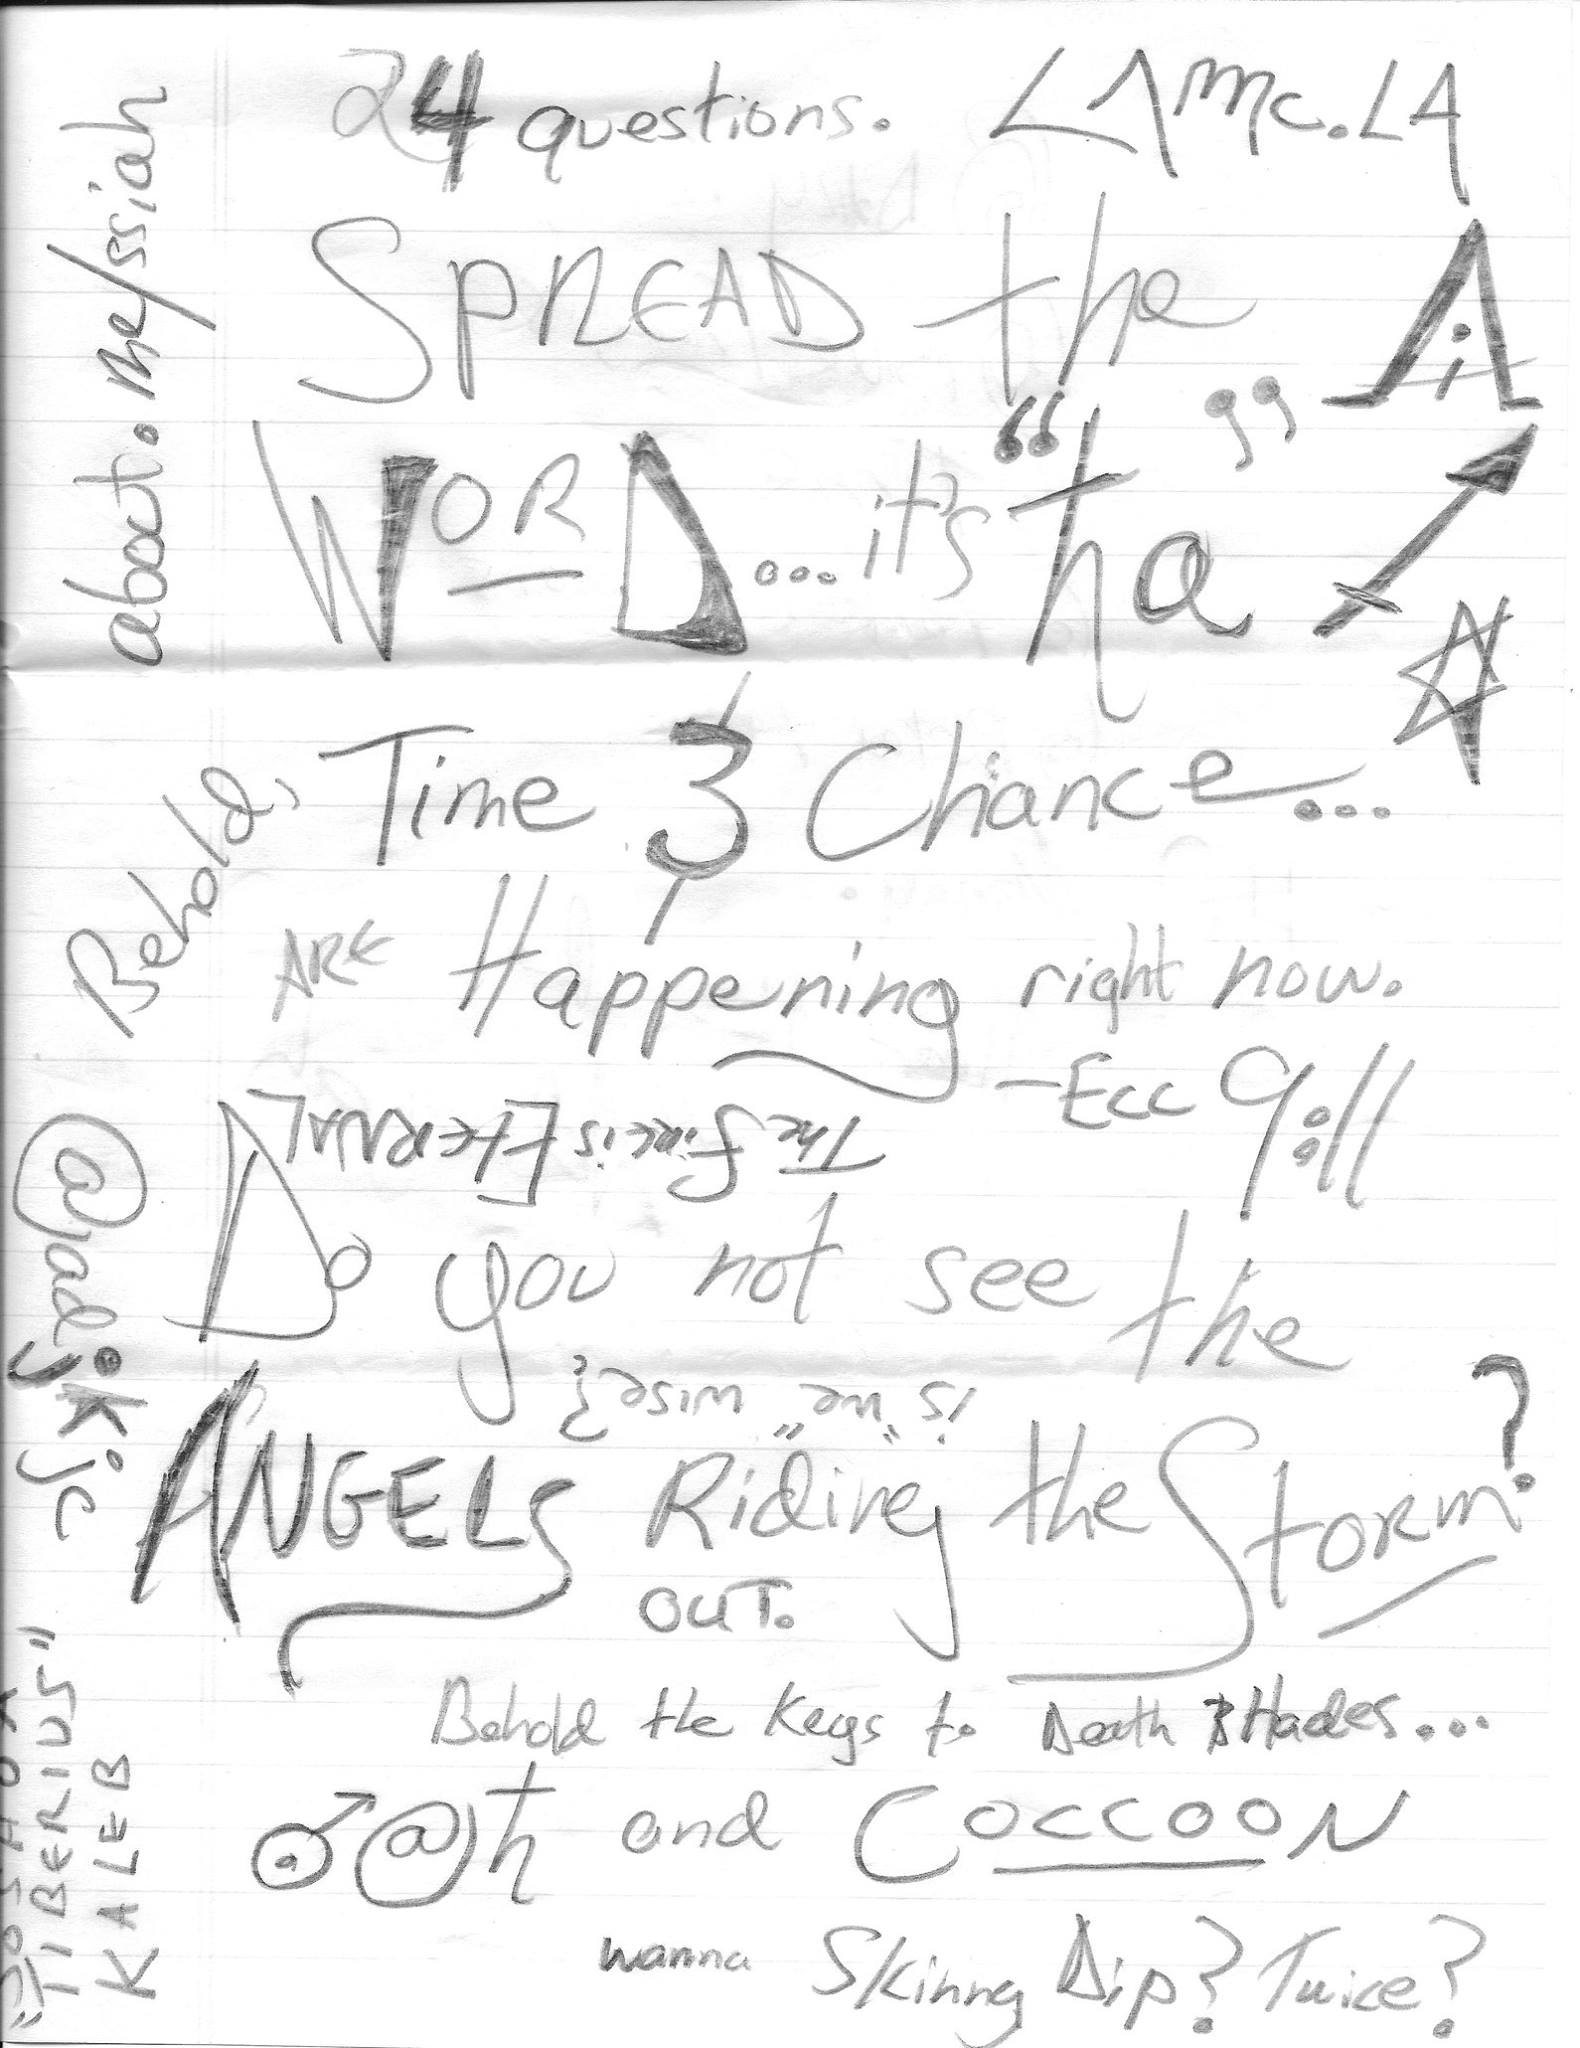 24 questions. LAmc.LA
SPREAD the
WORD... it's "ha"
Time & Chance...
ARE Happening right now.
-Ecc 9:11
The fire is EteRNAL
Do you not see the
is "we" wise?
ANGELS Riding the Storm?
OUT.
Behold the Keys to Death & Hades...
♂@ħ and COCCOON
wanna Skinny Dip? Twice?
about.me/ssiah
Behold,
"TIBERIUS"
KALEB